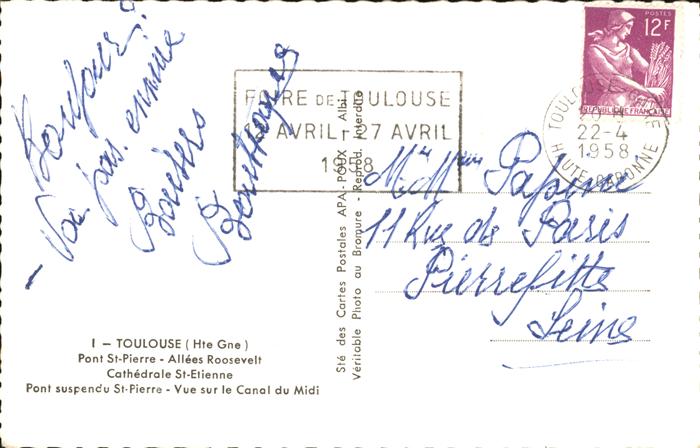 Bonjour
Baisers
POSTES
12F
REPUBLIQUE FRANÇAISE
FOIRE DE TOULOUSE
AVRIL-27 AVRIL
1958
TOULOUSE
22-4
1958
HAUTE-GARONNE
Papine
11 Rue de Paris
Pierrefitte
Seine
Sté des Cartes Postales APA-POUX - Albi
Véritable Photo au Bromure - Reprod. Interdite
I — TOULOUSE (Hte Gne)
Pont St-Pierre - Allées Roosevelt
Cathédrale St-Etienne
Pont suspendu St-Pierre - Vue sur le Canal du Midi